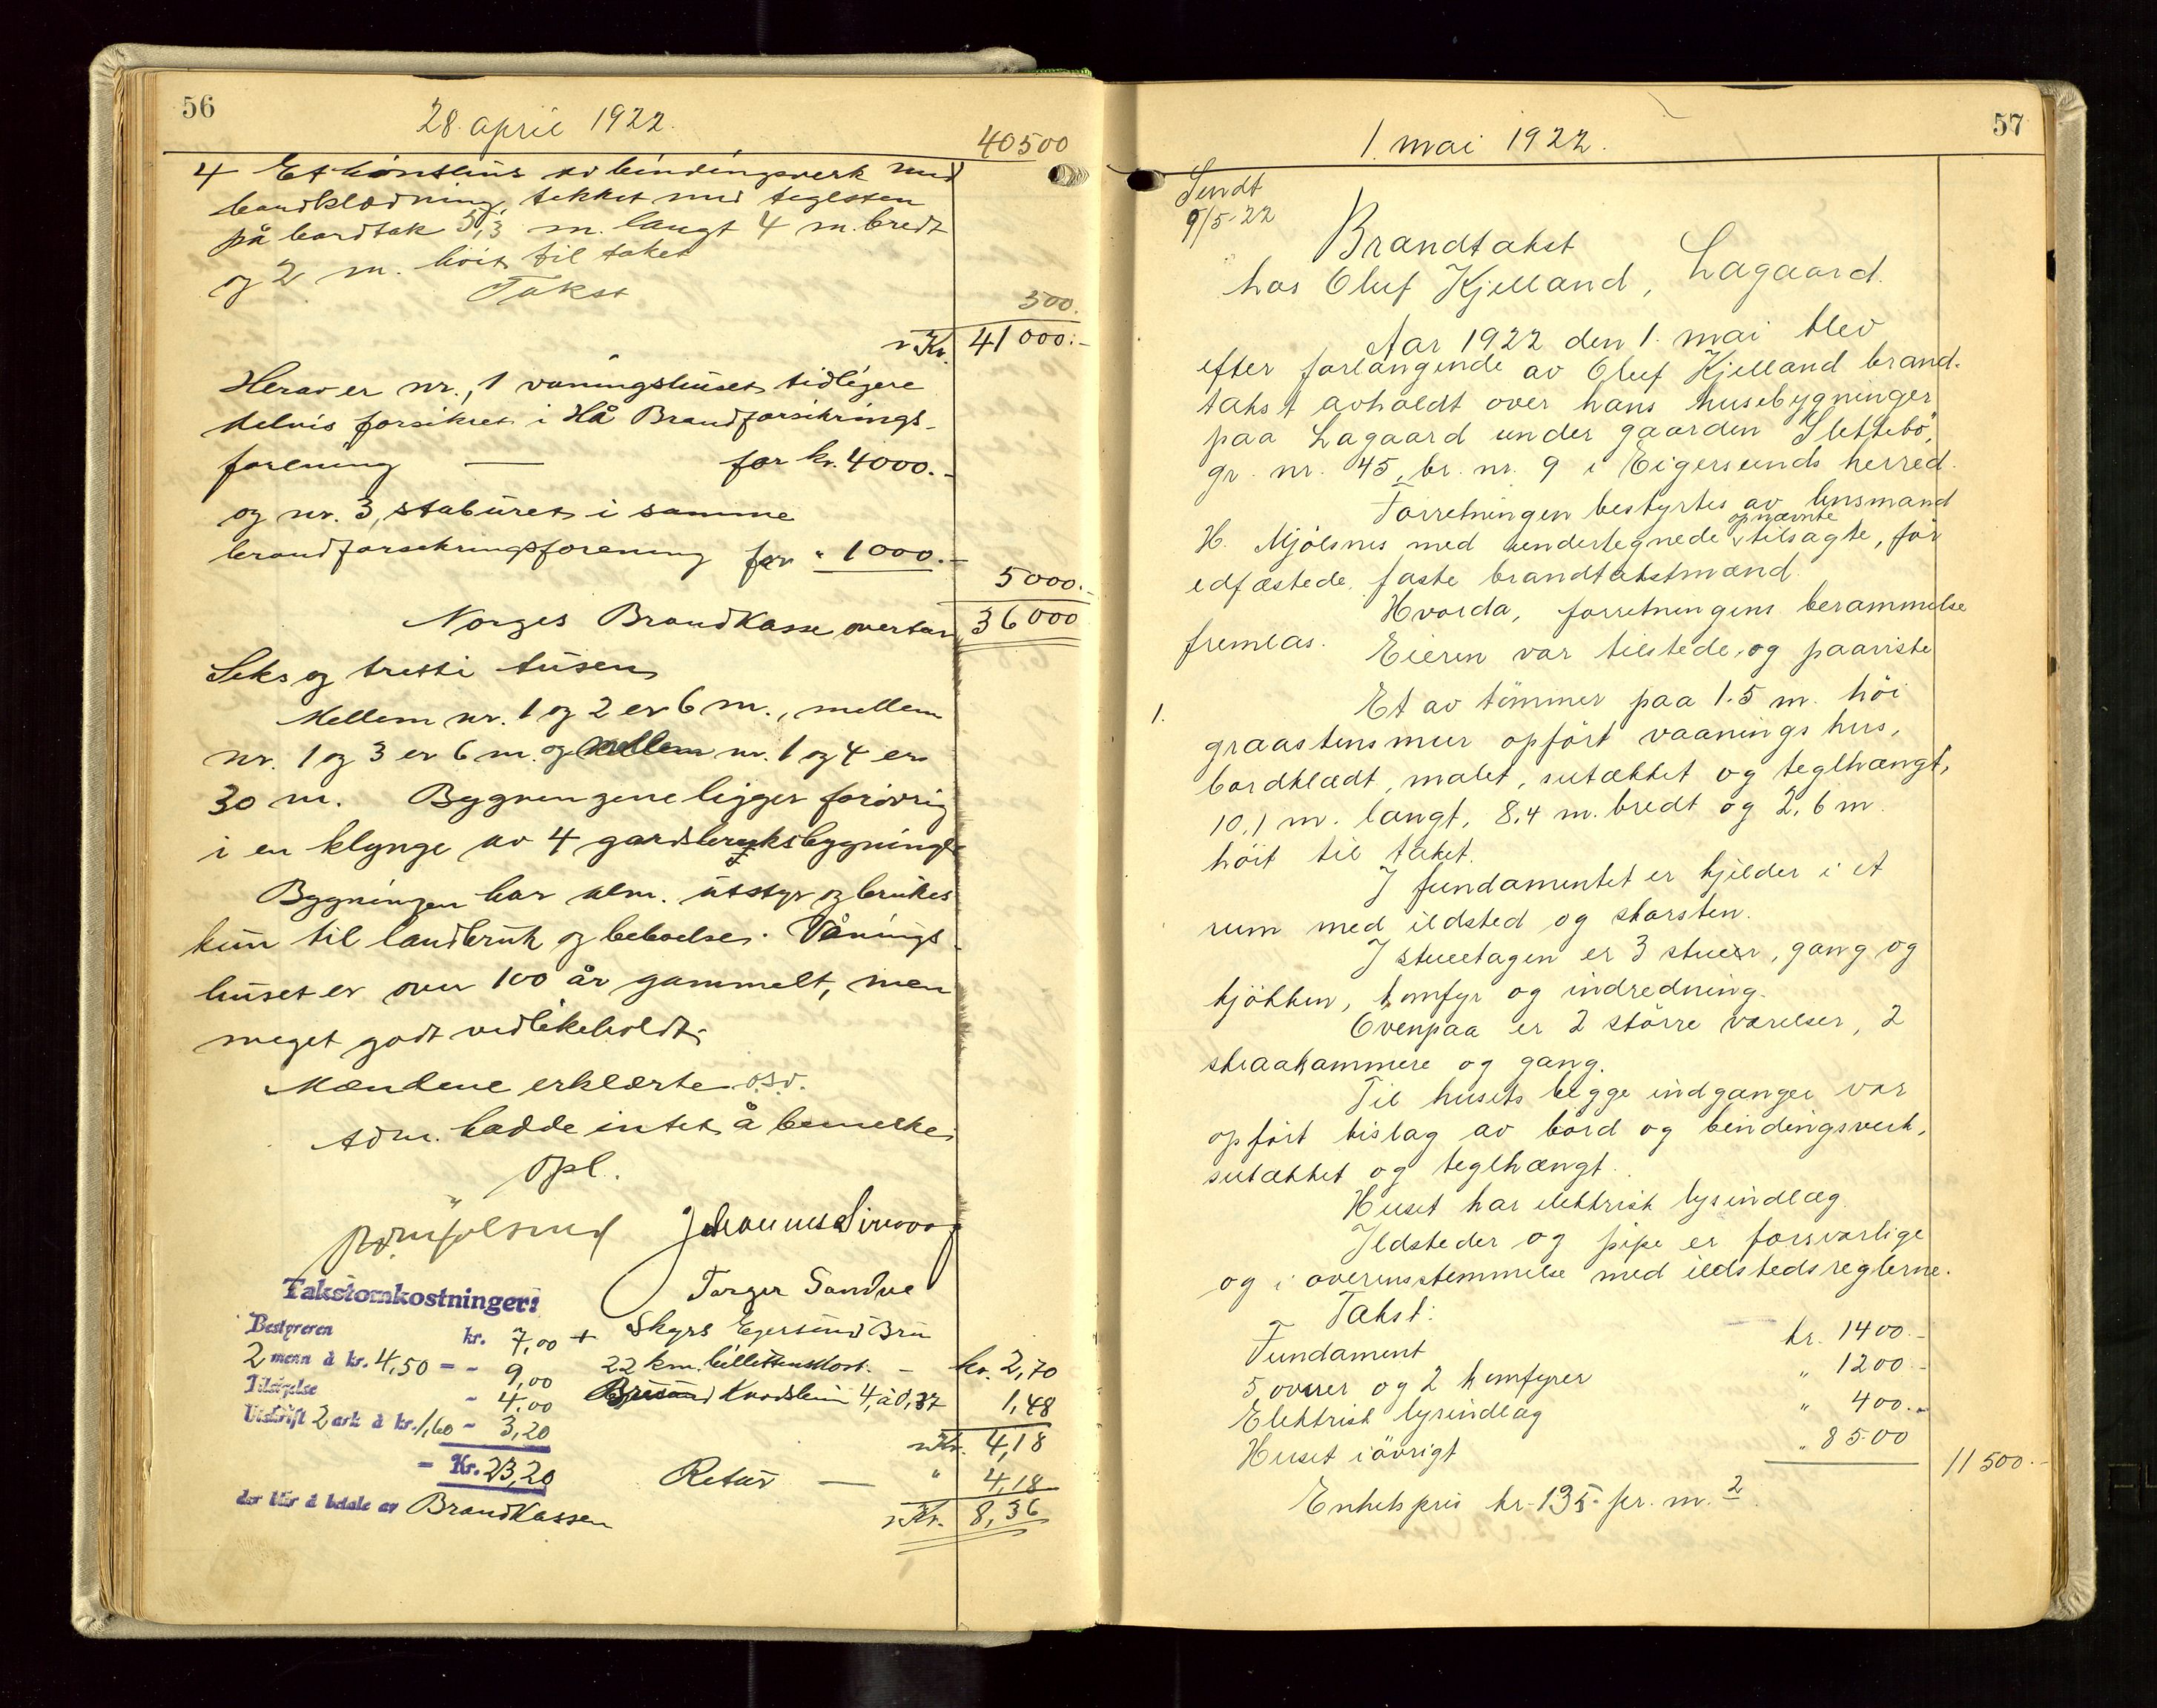 56
28. april 1922.
40500
4 Et hönsehus av bindingsverk med
bordklædning, tekket med teglsten
på bordtak 5,3 m. langt 4 m. bredt
og 2 m. höit til taket
Takst
500.
Kr. 41000.-
Herav er nr. 1 våningshuset tidligere
delvis forsikret i Hå Brandforsikrings-
forening — for kr. 4000.-
og nr. 3, staburet i samme
brandforsikringsforening for " 1000.-
5000.-
Norges Brandkasse overtar 36000
Seks og tretti tusen
Mellem nr. 1 og 2 er 6 m., mellem
nr. 1 og 3 er 6 m. og mellem nr. 1 og 4 er
30 m. Bygningene ligger forövrig
i en klynge av 4 gardsbruksbygninger
Bygningen har alm. utstyr og brukes
kun til landbruk og beboelse. Vånings-
huset er over 100 år gammelt, men
meget godt vedlikeholdt.
Mændene erklærte osv.
Adm. hadde intet å bemerke.
Opl.
Torger Sandve
Takstomkostninger:
Bestyreren kr. 7,00 + Skyss Egersund Bru
2 menn à kr. 4,50 = - 9,00 22 km. billettenskost. - kr. 2,70
Tilsigelse - 4,00 4, à 0,37 1,48
Utskrift 2 ark à kr. 1,60 - 3,20
Kr. 4,18
- Kr. 23,20
Retur — " 4,18
der blir å betale av Brandkassen
Kr. 8,36
57
1. mai 1922.
Sendt
9/5-22
Brandtakst
hos Oluf Kjelland, Lagaard.
Aar 1922 den 1. mai blev
efter forlangende av Oluf Kjelland brand-
takst avholdt over hans husebygninger
paa Lagaard under gaarden "Slettebö",
gr. nr. 45, br. nr. 9 i Eigersunds herred.
Forretningen bestyrtes av lensmand
opnævnte
H. Mjölsnes med undertegnede v tilsagte, før
edfæstede faste brandtakstmænd.
Hvorda, forretningens berammelse
fremlas. Eieren var tilstede, og paaviste
1. Et av tömmer paa 1.5 m. höi
graastensmur opfört vaaningshus,
bordklædt, malet, sutækket og teglhængt,
10,1 m. langt, 8,4 m. bredt og 2,6 m.
höit til taket.
I fundamentet er kjelder i et
rum med ildsted og skorsten.
I stueetagen er 3 stuer, gang og
kjökken, komfyr og indredning.
Ovenpaa er 2 större værelser, 2
skraakammere og gang.
Til husets begge indganger var
opfört bislag av bord og bindingsverk,
sutækket og teglhængt.
Huset har elektrisk lysindlæg.
Ildsteder og pipe er forsvarlige
og i overensstemmelse med ildstedsreglerne.
Takst:
Fundament kr. 1400.-
5 ovner og 2 komfyrer " 1200.-
Elektrisk lysindlæg " 400.-
Huset iövrigt " 8500
11500.-
Enhetspris kr. 135.- pr. m.2